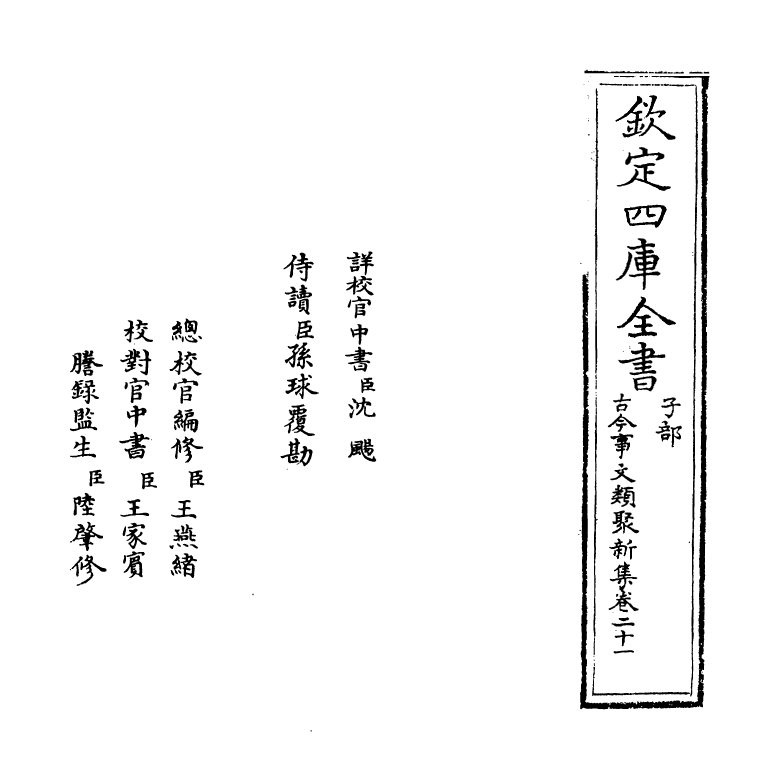 欽定四庫全書
子部
古今事文類聚新集卷二十一
詳校官中書臣沈颺
侍讀臣孫球覆勘
總校官編修臣王燕緒
校對官中書臣王家賓
謄錄監生臣陸肇修